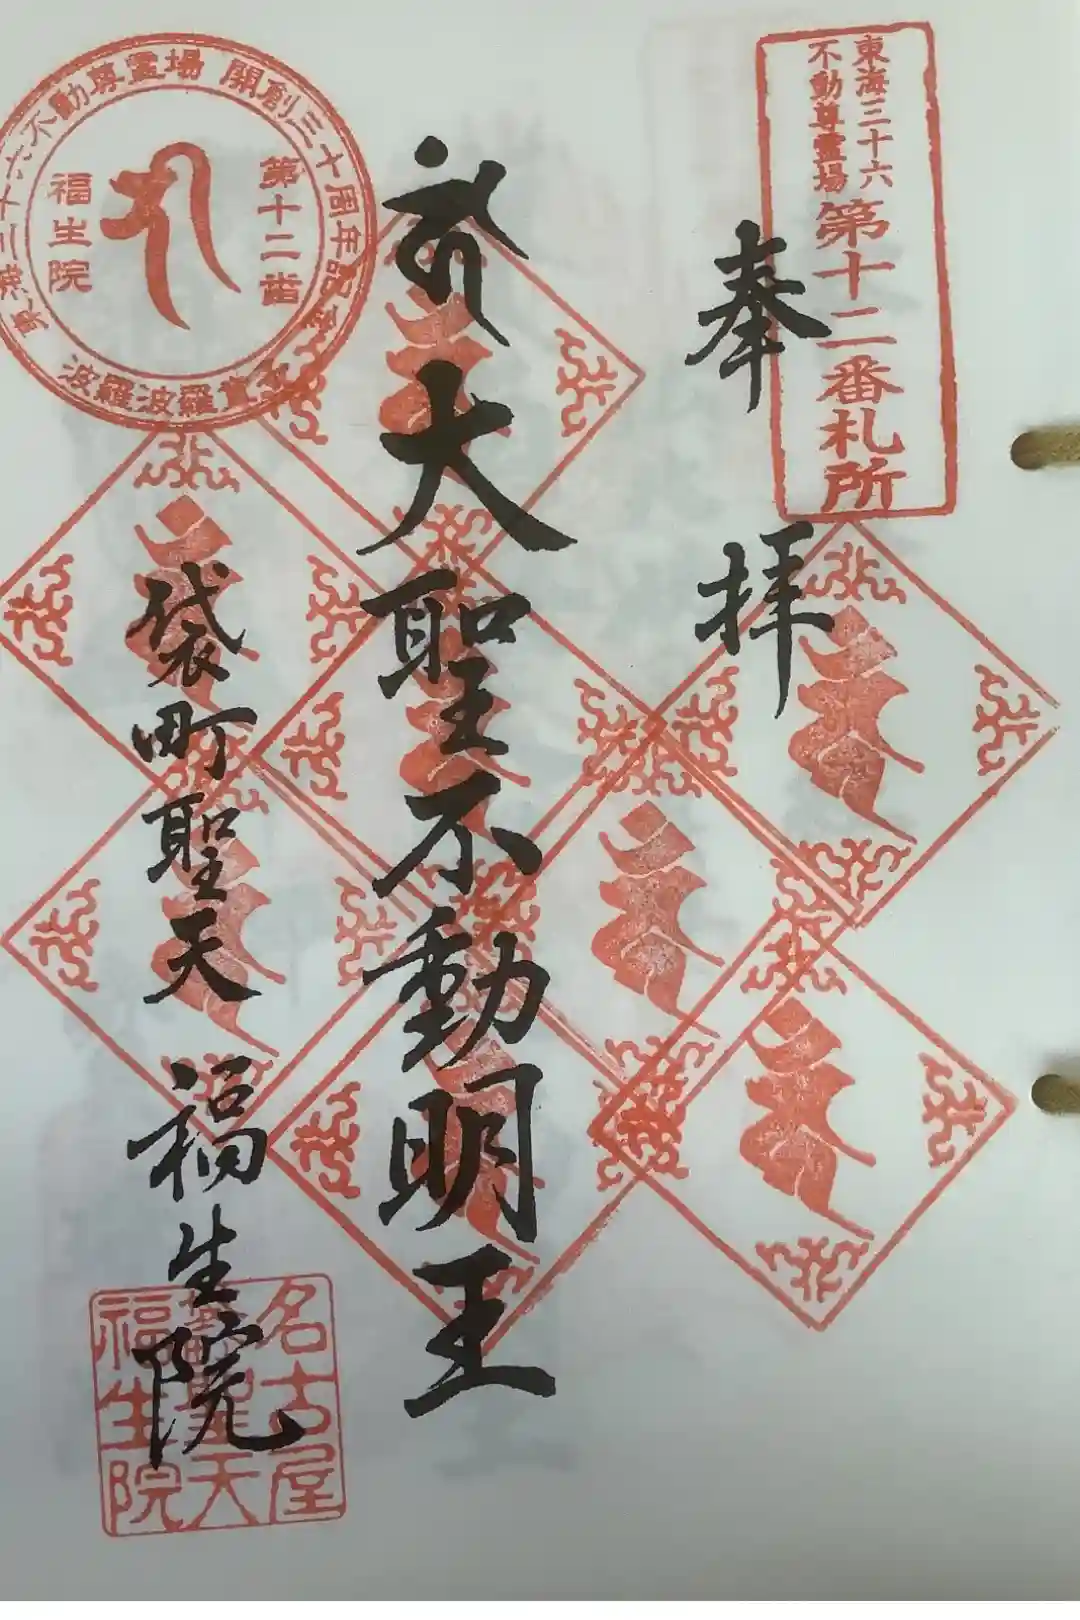 東海三十六
不動尊霊場
第十二番札所
奉拝
大聖不動明王
袋町聖天 福生院
不動尊霊場 開創三十周年記念
第十二番
福生院
波羅波羅蜜
名古屋
聖天
福生院